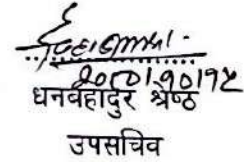 २०८०।१०।१५
धनवहादुर श्रेष्ठ
उपसचिव